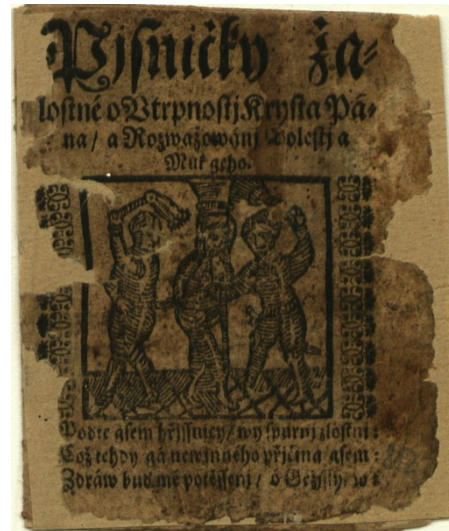 Pjsničky ža-
lostné o Vtrpnostj Krysta Pá-
na / a Rozwažowánj Bolestj a
Muk geho.
Podte gsem hřjssnicy / wy spurnj zlostnj :
Což tehdy gá newinného přjčina gsem :
Zdráw bud mé potěssenj / ó Gežjssy, w :